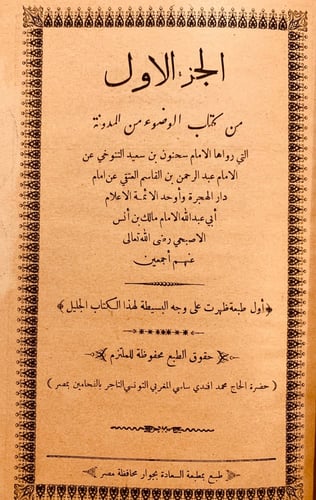 الجزء الاول
من كتاب الوضوء من المدونة
التي رواها الامام سحنون بن سعيد التنوخي عن
الامام عبد الرحمن بن القاسم العتقي عن امام
دار الهجرة وأوحد الائمة الاعلام
أبي عبد الله الامام مالك بن أنس
الاصبحي رضى الله تعالى
عنهم أجمعين
﴿أول طبعة ظهرت على وجه البسيطة لهذا الكتاب الجليل﴾
حقوق الطبع محفوظة للملتزم
( حضرة الحاج محمد افندى ساسى المغربي التونسي التاجر بالفحامين بمصر )
طبع بمطبعة السعادة بجوار محافظة مصر